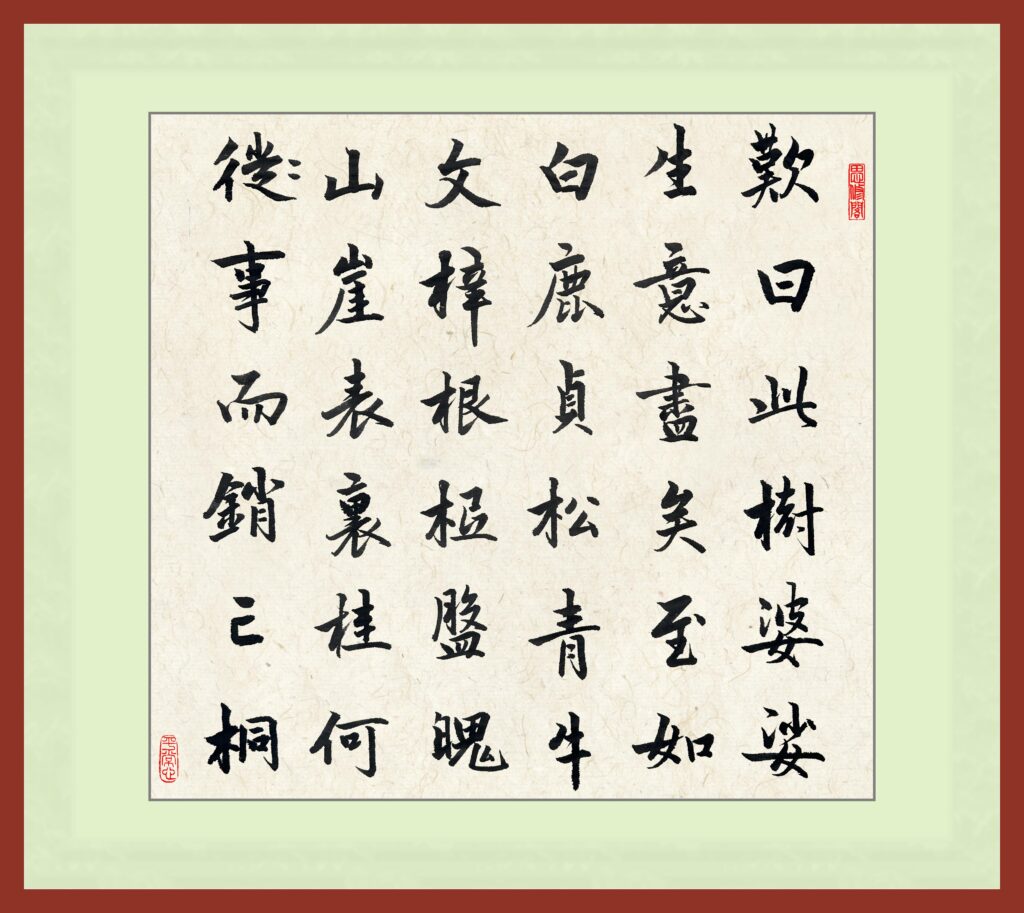 歎曰此樹婆娑
生意盡矣至如
白鹿貞松青牛
文梓根柢盤魄
山崖表裏桂何
徙事而銷亡桐
平常心